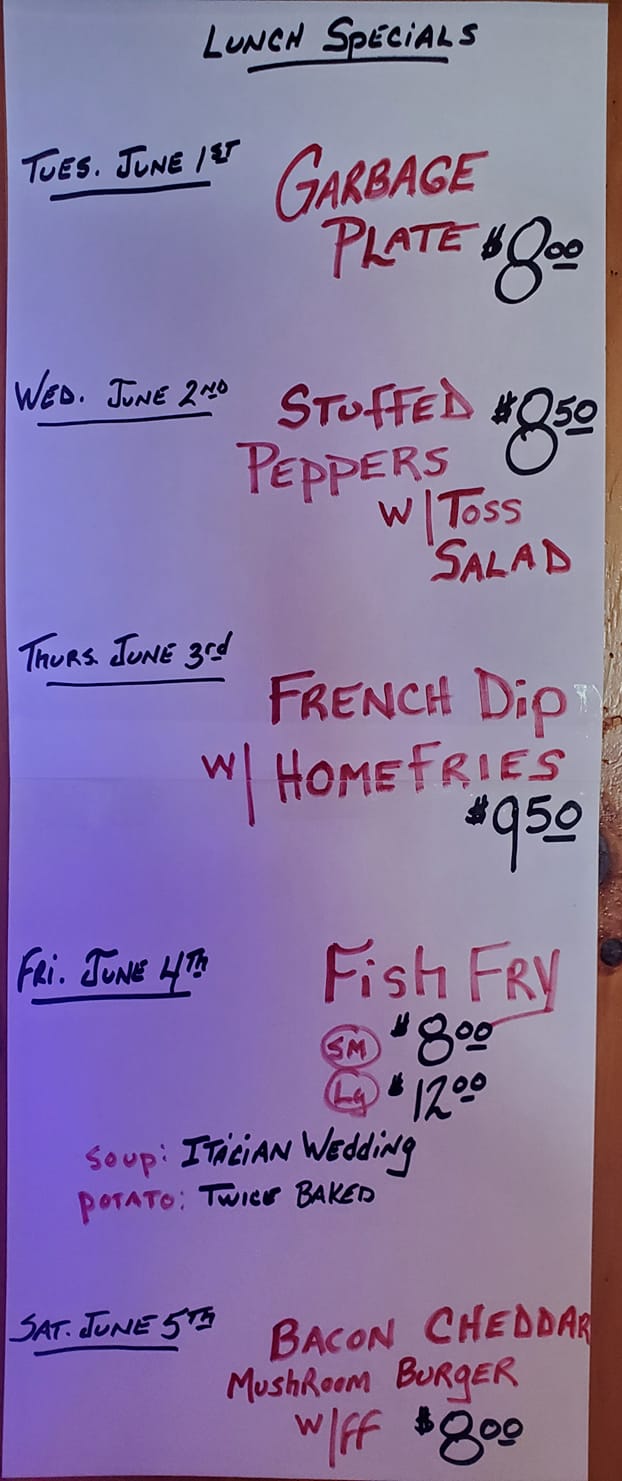 Lunch Specials
Tues. June 1st
Garbage
Plate $8.00
Wed. June 2nd
Stuffed $8.50
Peppers
w/Toss
Salad
Thurs. June 3rd
French Dip
w/ Homefries
$9.50
Fri. June 4th
Fish Fry
SM $8.00
Lg $12.00
Soup: Italian Wedding
Potato: Twice Baked
Sat. June 5th
Bacon Cheddar
Mushroom Burger
w/ff $8.00